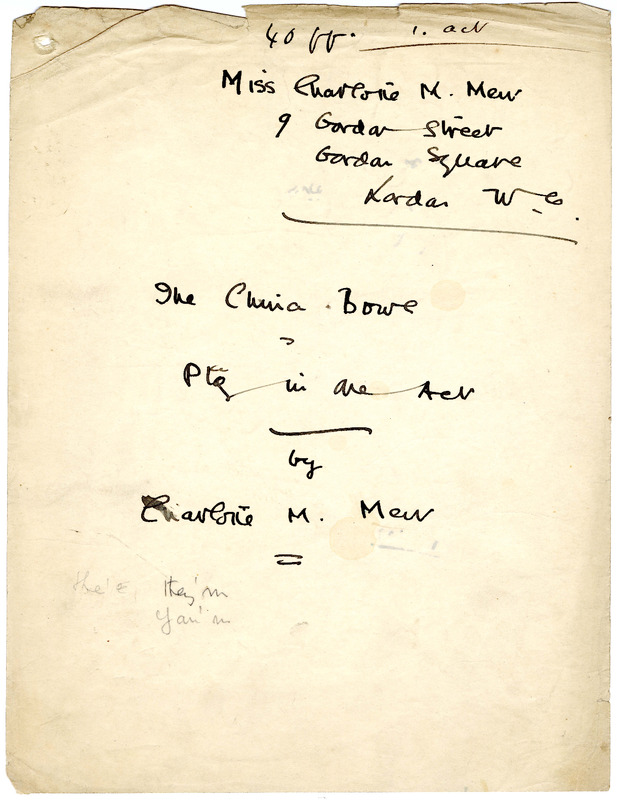 40 ff. 1. act
Miss Charlotte M. Mew
9 Gordon Street
Gordon Square
London W.C.
The China Bowl
Play in one Act
by
Charlotte M. Mew
they'm
you'm